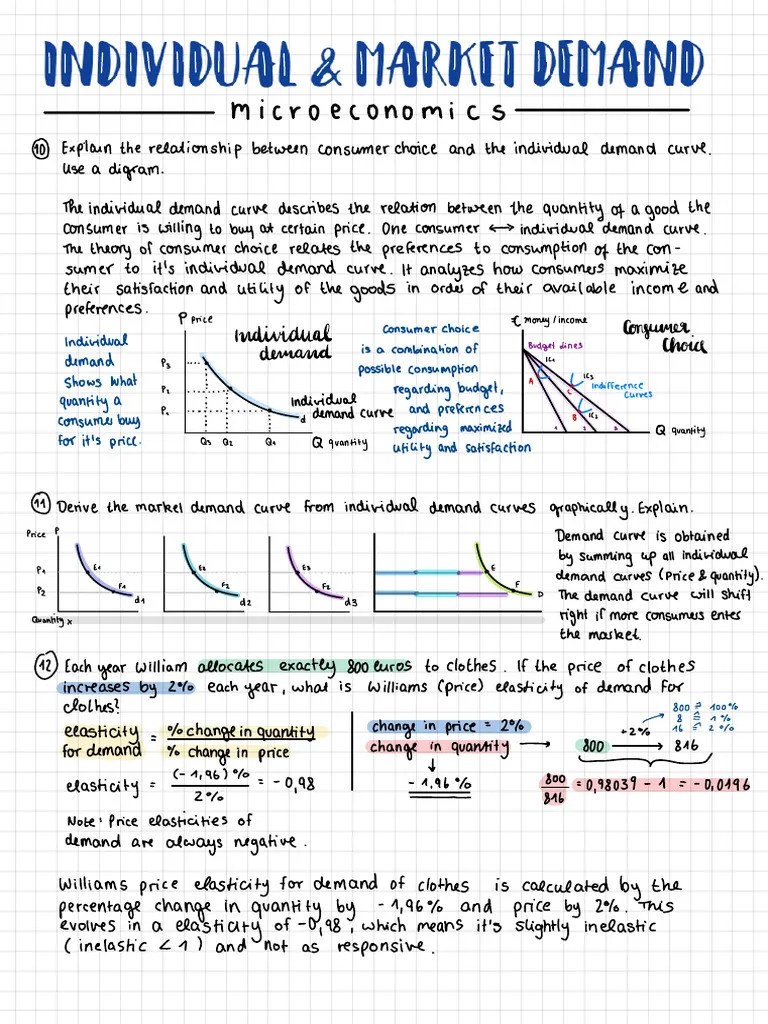 INDIVIDUAL & MARKET DEMAND
microeconomics
10 Explain the relationship between consumer choice and the individual demand curve.
Use a digram.
The individual demand curve describes the relation between the quantity of a good the
consumer is willing to buy at certain price. One consumer ↔ individual demand curve.
The theory of consumer choice relates the preferences to consumption of the con-
sumer to it's individual demand curve. It analyzes how consumers maximize
their satisfaction and utility of the goods in order of their available income and
preferences.
Individual
demand
shows what
quantity a
consume buy
for it's price.
P Price
Individual
demand
P3
P2
P1
Individual
demand curve
d
Q3 Q2 Q1 Q quantity
Consumer choice
is a combination of
possible consumption
regarding budget,
and preferences
regarding maximized
utility and satisfaction
€ money / income
Consumer
Choice
Budget lines
IC1
IC3
Indifference
curves
A
C
B
IC2
1 2 3
Q quantity
11 Derive the market demand curve from individual demand curves graphically. Explain.
Price P
P1
P2
E1
F1
d1
E2
F2
d2
E3
F3
d3
E
F
D
Quantity x
Demand curve is obtained
by summing up all individual
demand curves (Price & quantity).
The demand curve will shift
right if more consumers enter
the market.
12 Each year William allocates exactly 800 euros to clothes. If the price of clothes
increases by 2% each year, what is Williams (price) elasticity of demand for
clothes?
elasticity
for demand = % change in quantity
% change in price
elasticity = (-1,96)% / 2% = -0,98
Note: Price elasticities of
demand are always negative.
change in price = 2%
change in quantity →
↓
-1,96%
800 ≙ 100%
8 ≙ 1%
16 ≙ 2%
+2%
800 → 816
800/816 = 0,98039 - 1 = -0,0196
Williams price elasticity for demand of clothes is calculated by the
percentage change in quantity by -1,96% and price by 2%. This
evolves in a elasticity of -0,98, which means it's slightly inelastic
(inelastic < 1) and not as responsive.